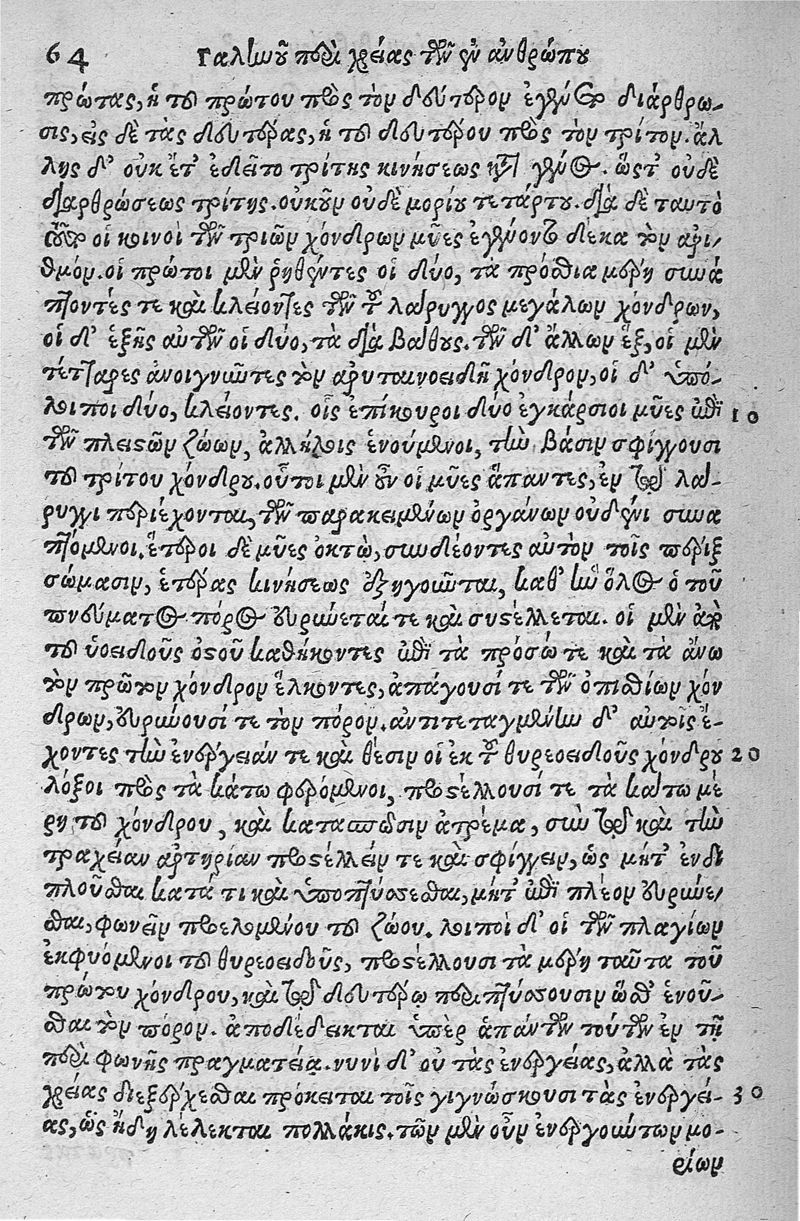 64 Γαλίωοῦ περὶ χρείας τῶν ἐν ἀνθρώπου
πρώτας, ἡ τοῦ πρώτου πρὸς τὸν δεύτερον ἐγένετο διάρθρω-
σις, εἰς δὲ τὰς δευτέρας, ἡ τοῦ δευτέρου πρὸς τὸν τρίτον. ἄλ
λης δ' οὐκ ἔτ' ἐδεῖτο τρίτης κινήσεως κατὰ γένος. ὥστ' οὐδὲ
διαρθρώσεως τρίτης. οὐκοῦν οὐδὲ μορίου τετάρτου. διὰ δὲ ταυτὸ
τοῦτο οἱ κοινοὶ τῶν τριῶν χόνδρων μῦες ἐγένοντο δέκα τὸν ἀρι-
θμόν. οἱ πρῶτοι μὲν ῥηθέντες οἱ δύο, τὰ πρόσθια μέρη συνά
πτοντές τε καὶ κλείοντες τῶν τοῦ λάρυγγος μεγάλων χόνδρων,
οἱ δ' ἑξῆς αὐτῶν οἱ δύο, τὰ διὰ βάθους. τῶν δ' ἄλλων ἓξ, οἱ μὲν
τέτταρες ἀνοιγνύντες τὸν ἀρυταινοειδῆ χόνδρον, οἱ δ' ὑπό-
λοιποι δύο, κλείοντες. οἷς ἐπίκουροι δύο ἐγκάρσιοι μῦες ἐπὶ 10
τῶν πλείστων ζώων, ἀλλήλοις ἑνούμενοι, τὴν βάσιν σφίγγουσι
τοῦ τρίτου χόνδρου. οὗτοι μὲν οὖν οἱ μῦες ἅπαντες, ἐν τῷ λά-
ρυγγι περιέχονται, τῶν παρακειμένων ὀργάνων οὐδενὶ συνα
πτόμενοι. ἕτεροι δὲ μῦες ὀκτὼ, συνδέοντες αὐτὸν τοῖς πέριξ
σώμασιν, ἑτέρας κινήσεως ἐξηγοῦνται, καθ' ἣν ὅλος ὁ τοῦ
πνεύματος πόρος εὐρύνεταί τε καὶ συστέλλεται. οἱ μὲν ἀπὸ
τοῦ ὑοειδοῦς ὀστοῦ καθήκοντες ἐπὶ τὰ πρόσω τε καὶ τὰ ἄνω
τὸν πρῶτον χόνδρον ἕλκοντες, ἀπάγουσί τε τῶν ὀπισθίων χόν
δρων, εὐρύνουσί τε τὸν πόρον. ἀντιτεταγμένην δ' αὐτοῖς ἔ-
χοντες τὴν ἐνέργειάν τε καὶ θέσιν οἱ ἐκ τοῦ θυρεοειδοῦς χόνδρου 20
λόξοι πρὸς τὰ κάτω φερόμενοι, προστέλλουσί τε τὰ κάτω μέ
ρη τοῦ χόνδρου, καὶ κατασπῶσιν ἀτρέμα, σὺν τῷ καὶ τὴν
τραχεῖαν ἀρτηρίαν προστέλλειν τε καὶ σφίγγειν, ὡς μήτ' ἐνδι
πλοῦσθαι κατά τι καὶ ὑποπτύσσεσθαι, μήτ' ἐπὶ πλέον εὐρύνε-
σθαι, φωνεῖν προελομένου τοῦ ζώου. λοιποὶ δ' οἱ τῶν πλαγίων
ἐκφυόμενοι τοῦ θυρεοειδοῦς, προστέλλουσι τὰ μέρη ταῦτα τοῦ
πρώτου χόνδρου, καὶ τῷ δευτέρῳ περιπτύσσουσιν ὥσθ' ἑνοῦ-
σθαι τὸν πόρον. ἀποδέδεικται ὑπὲρ ἁπάντων τούτων ἐν τῇ
περὶ φωνῆς πραγματείᾳ. νυνὶ δ' οὐ τὰς ἐνεργείας, ἀλλὰ τὰς
χρείας διεξέρχεσθαι πρόκειται τοῖς γιγνώσκουσι τὰς ἐνεργεί- 30
ας, ὡς ἤδη λέλεκται πολλάκις. τῶν μὲν οὖν ἐνεργούντων μο-
ρίων